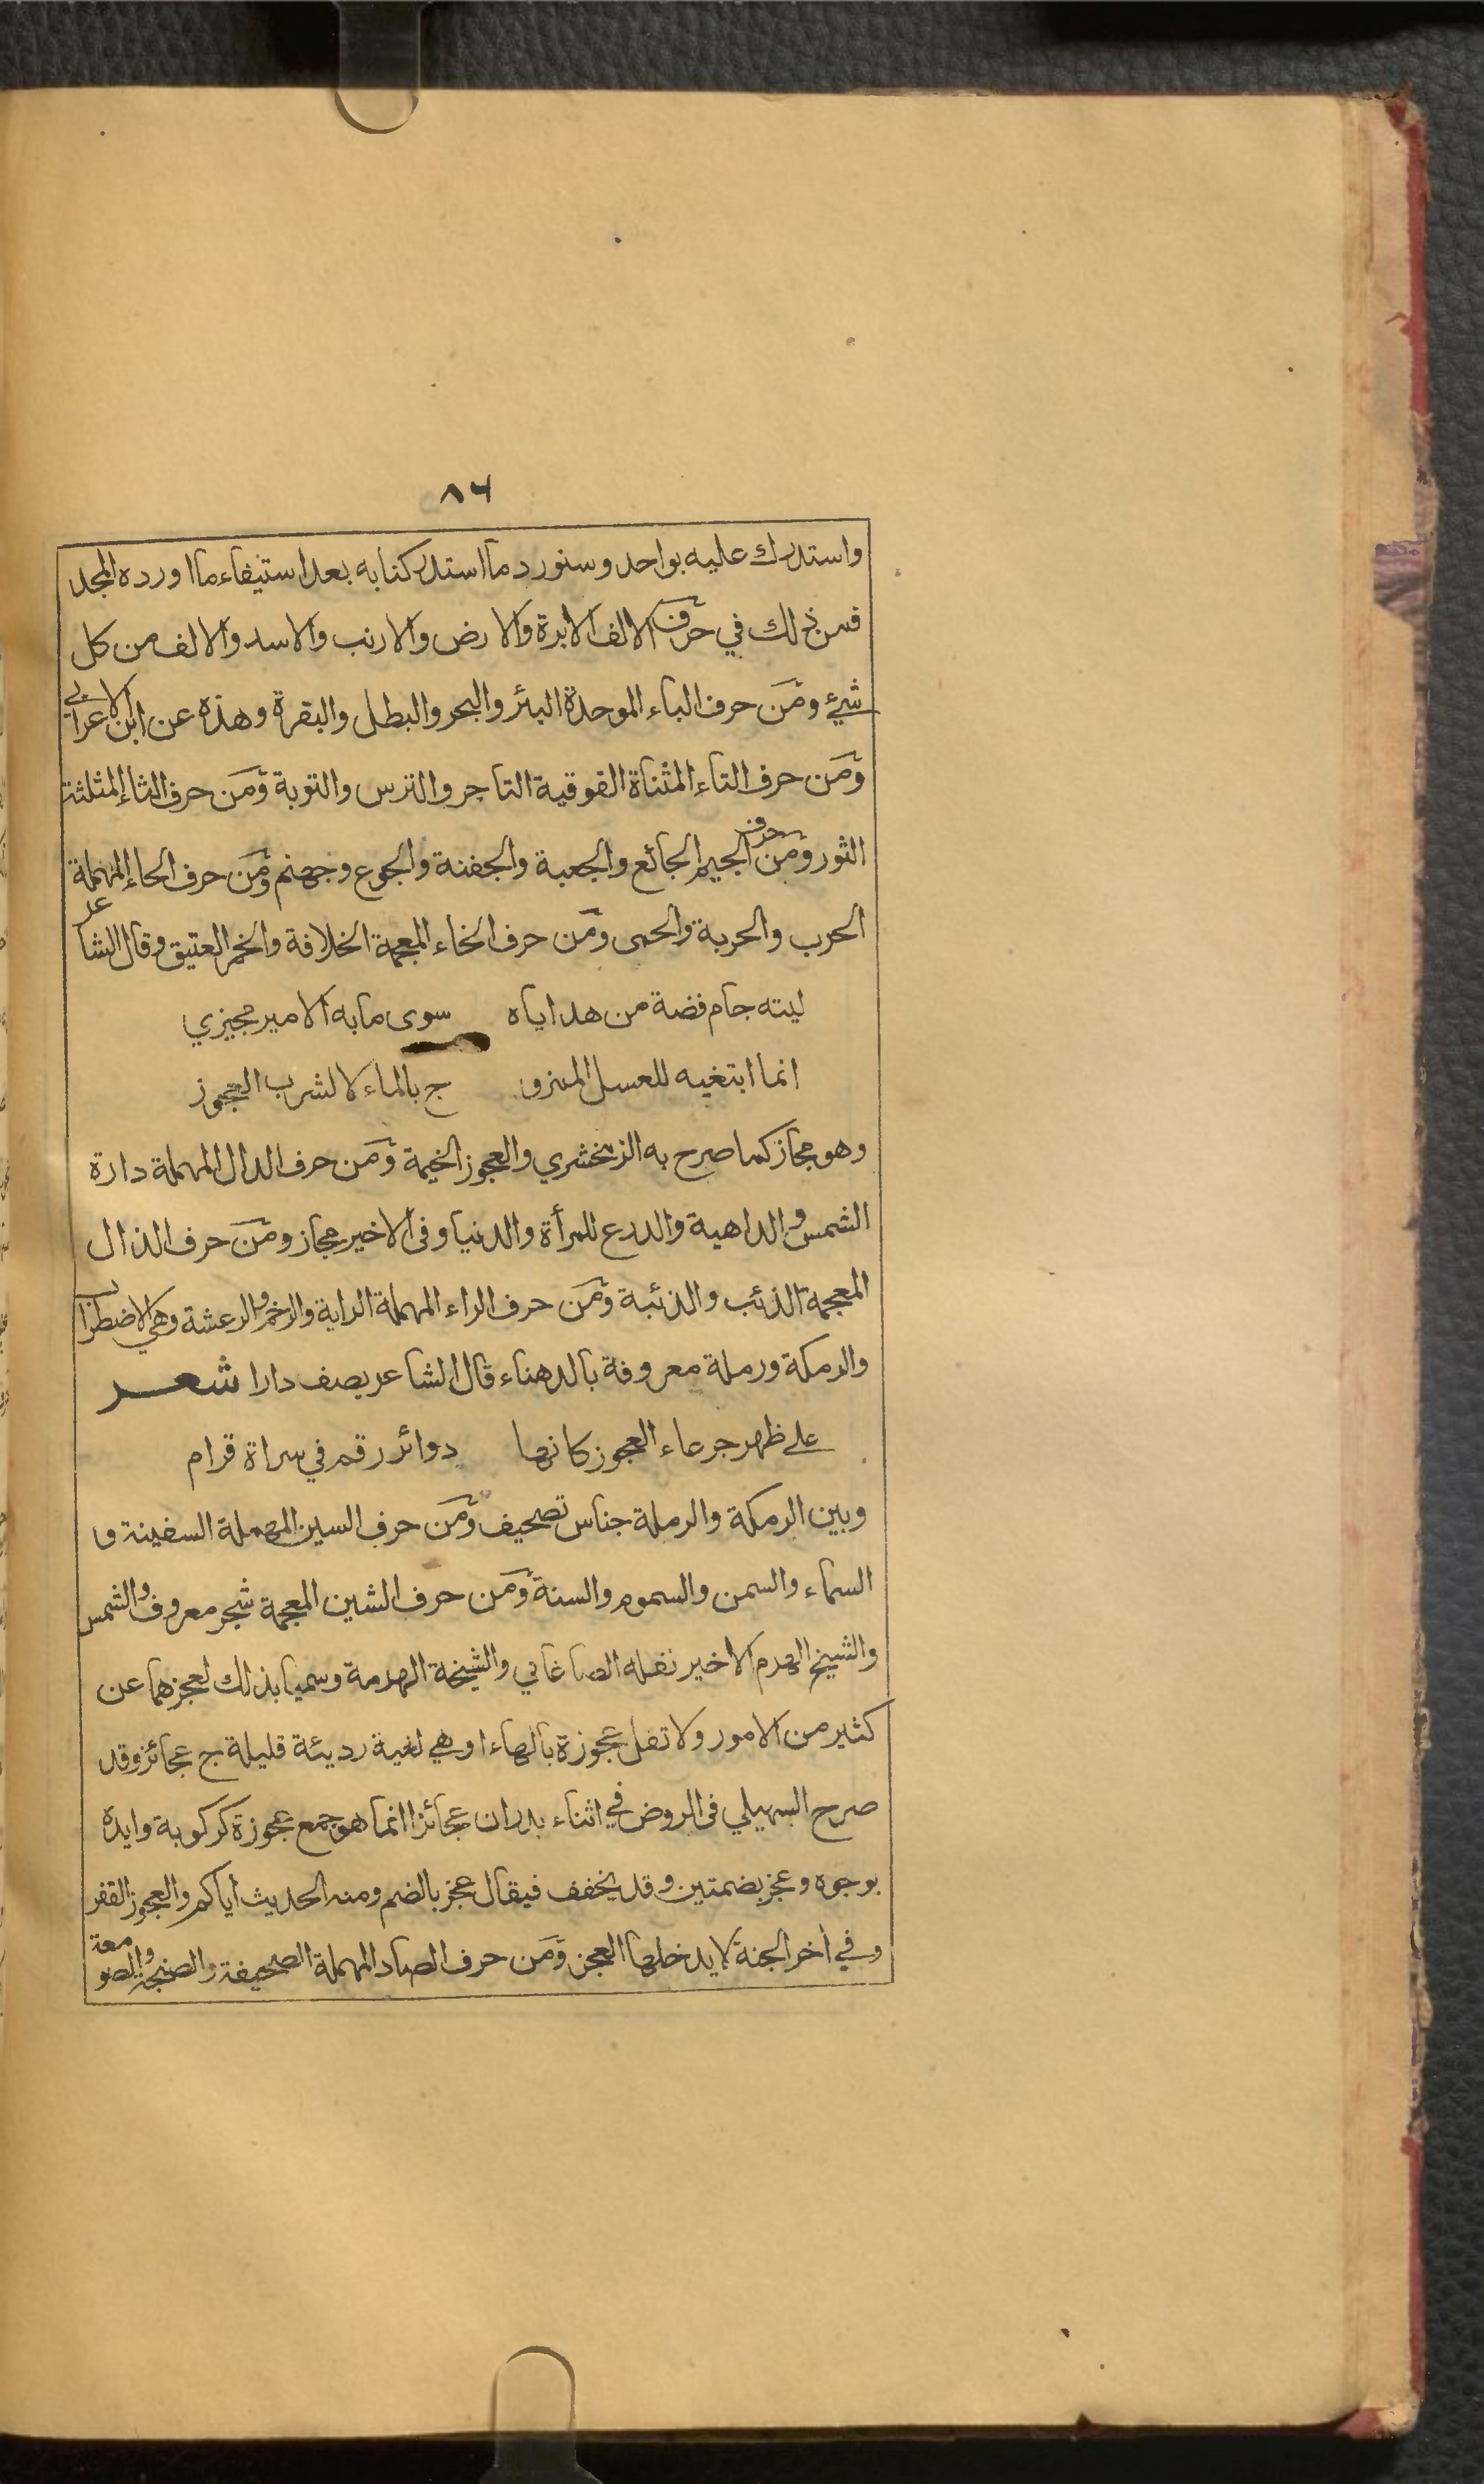 ٨٦
واستدرك عليه بواحد وسنورد ما استدركنا به بعد استيفاء ما اورده المجد
فمن ذلك في حرف الالف الابرة والارض والارنب والاسد والالف من كل
شيء ومن حرف الباء الموحدة البئر والبحر والبطل والبقرة وهذه عن ابن الاعرابي
ومن حرف التاء المثناة الفوقية التاجر والترس والتوبة ومن حرف الثاء المثلثة
الثور ومن حرف الجيم الجائع والجعبة والجفنة والجوع وجهنم ومن حرف الحاء المهملة
الحرب والحربة والحمى ومن حرف الخاء المعجمة الخلافة والخمر العتيق وقال الشاعر
ليته جام فضة من هداياه سوى ما به الامير مجيزي
انما ابتغيه للعسل الممزو ج بالماء لا لشرب العجوز
وهو مجاز كما صرح به الزمخشري والعجوز الخيمة ومن حرف الدال المهملة دارة
الشمس والداهية والدرع للمرأة والدنيا وفي الاخير مجاز ومن حرف الذال
المعجمة الذئب والذئبة ومن حرف الراء المهملة الراية والرخم والرعشة وهي الاضطراب
والرمكة ورملة معروفة بالدهناء قال الشاعر يصف دارا شعر
على ظهر جرعاء العجوز كانها دوائر رقم في سراة قرام
وبين الرمكة والرملة جناس تصحيف ومن حرف السين المهملة السفينة و
السماء والسمن والسموم والسنة ومن حرف الشين المعجمة شجر معروف والشمس
والشيخ الهرم الاخير نقله الصاغاني والشيخة الهرمة وسميا بذلك لعجزهما عن
كثير من الامور ولا تقل عجوزة بالهاء او هي لغية رديئة قليلة ج عجائز وقد
صرح السهيلي في الروض في اثناء بدر ان عجائز انما هو جمع عجوزة كركوبة وايده
بوجوه وعجز بضمتين وقد يخفف فيقال عجز بالضم ومنه الحديث اياكم والعجوز القفر
وفي آخر الجنة لا يدخلها العجز ومن حرف الصاد المهملة الصحيفة والصنجة والصومعة